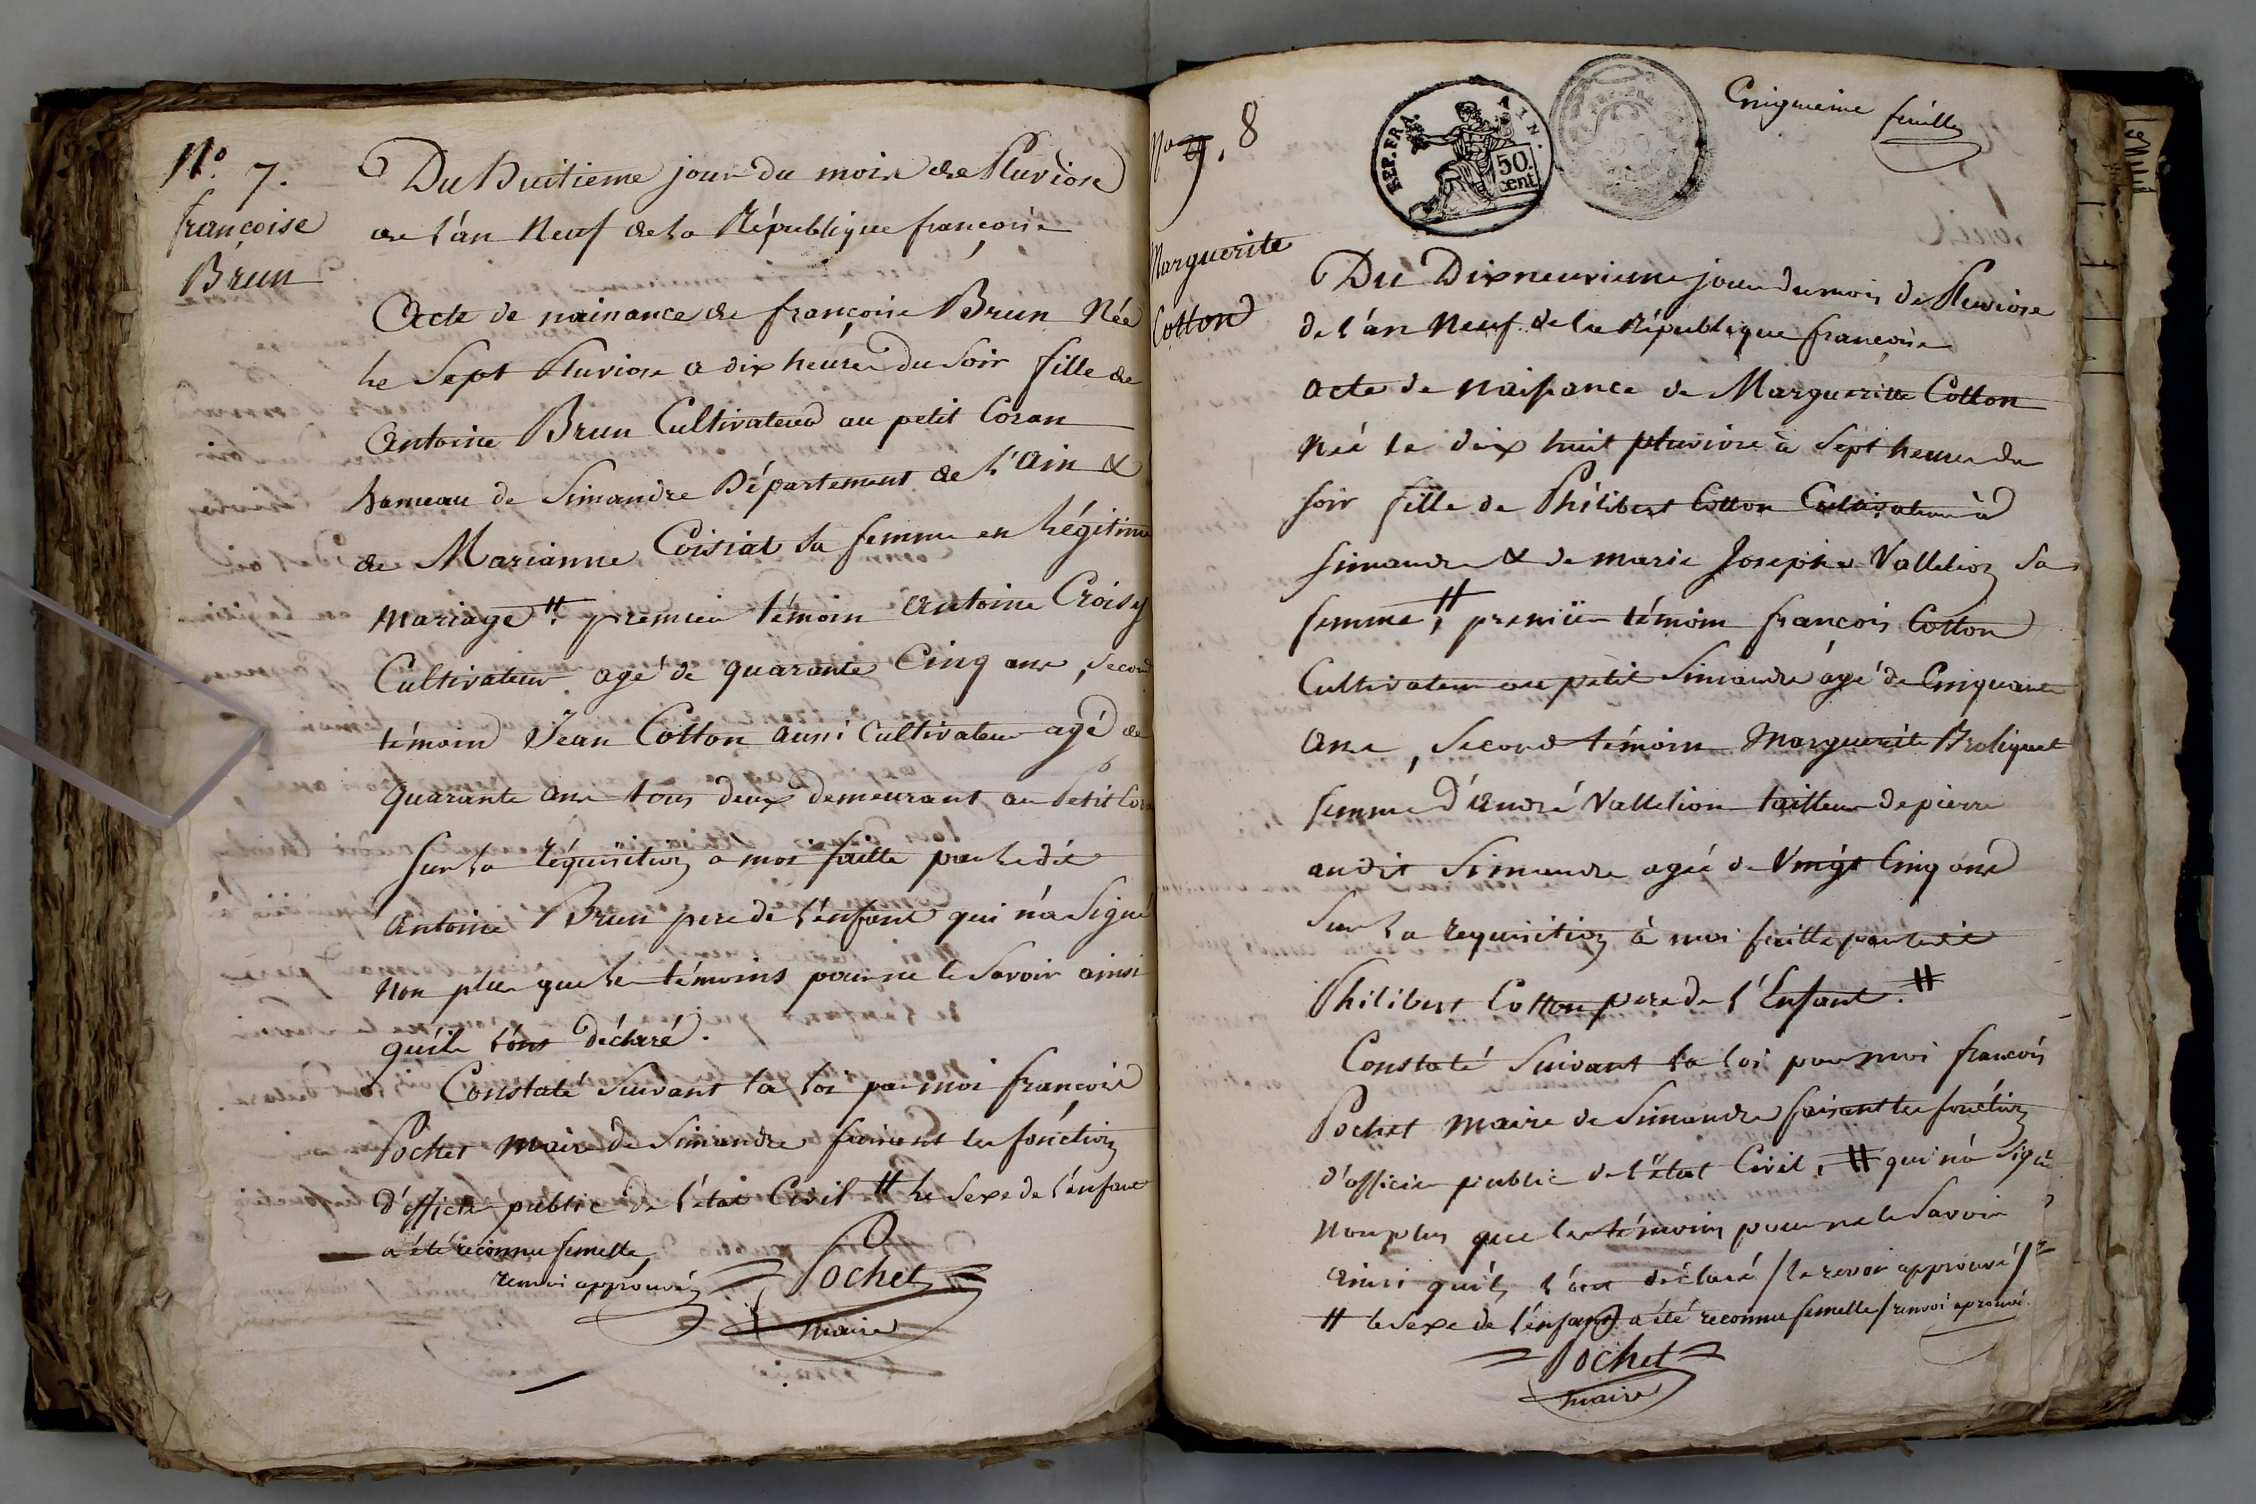 N.º 7.
françoise
Brun
Du Huitieme jour du mois de Pluviose
de l'an Neuf de la République françoise
Acte de naissance de françoise Brun Née
le Sept Pluviose a dix heures du Soir fille de
Antoine Brun Cultivateur au petit Coran
hameau de Simandre Département de l'Ain &
de Marianne Coisiat sa femme en Légitime
Mariage # premier témoin Antoine Croisy
Cultivateur agé de quarante Cinq ans, Second
témoin Jean Cotton aussi Cultivateur agé de
quarante ans tous deux demeurant au Petit Cor
Sur la réquisition a moi faitte par le dit
Antoine Brun pere de l'enfant qui n'a Signé
Non plus que les témoins pour ne le Savoir ainsi
qu'ils l'ont déclaré.
Constaté Suivant la loi par moi françois
Pochet maire de Simandre faisant les fonction
d'officier public de l'état Civil # le Sexe de l'enfant
a été reconnu femelle
renvoi approuvé
Pochet
maire
Nº 8
Cinquieme feuille
REP. FRA.
AIN.
50.
cent
Marguerite
Cotton
Du Dixneuvieme jour du mois de Pluviose
de l'an Neuf de la République françoise
acte de Naissance de Margueritte Cotton
Née le dix huit pluviose à Sept heures du
Soir fille de Philibert Cotton Cultivateur à
Simandre & de marie Josephe Vallelion Sa
femme, # premier témoin françois Cotton
Cultivateur au petit Simandre agé de Cinquante
Ans, Second témoin Marguerite Broliquet
femme d'André Vallelion tailleur de pierre
audit Simandre agée de Vingt Cinq ans
Sur la requisition à moi faitte par le dit
Philibert Cotton pere de l'Enfant. #
Constaté Suivant la loi par moi françois
Pochet maire de Simandre faisant les fonction
d'officier public de l'état Civil, # qui n'a Signé
Non plus que les témoins pour ne le Savoir
ainsi qu'ils l'ont déclaré / le renvoi approuvé /
# le Sexe de l'énfant a été reconnu femelle / renvoi aprouvé.
Pochet
maire